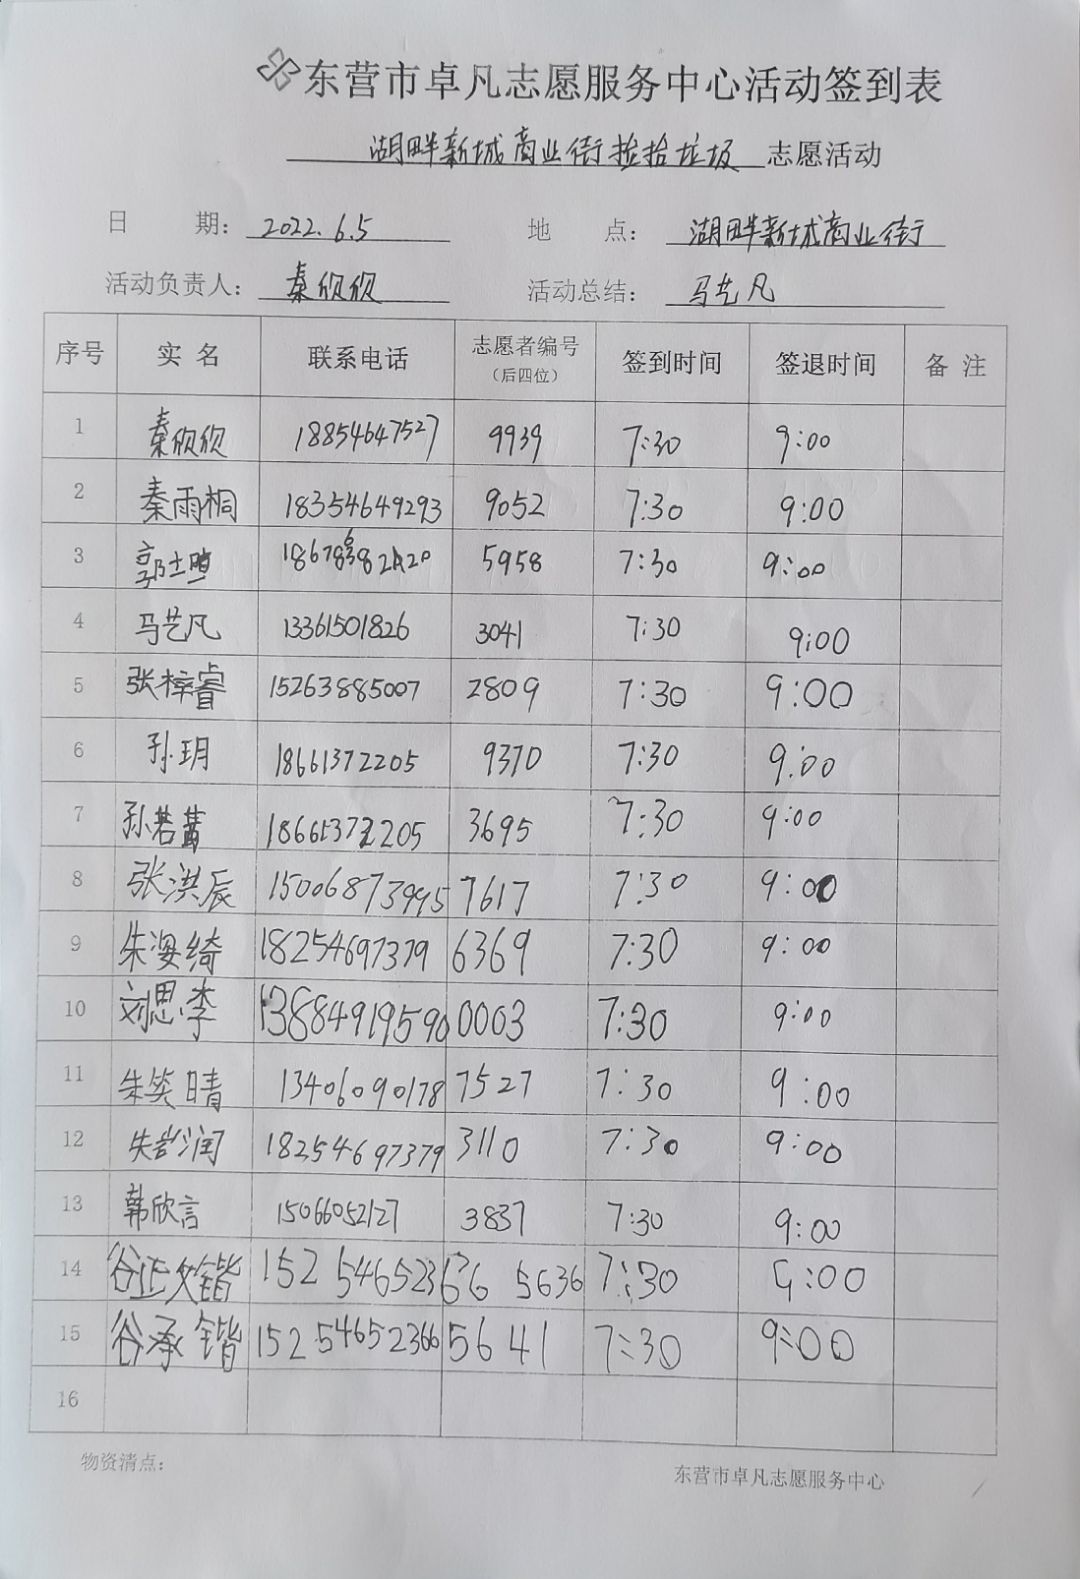 东营市卓凡志愿服务中心活动签到表
湖畔新城商业街捡拾垃圾 志愿活动
日 期: 2022.6.5 地 点: 湖畔新城商业街
活动负责人: 秦欣欣 活动总结: 马艺凡
序号 实 名 联系电话 志愿者编号(后四位) 签到时间 签退时间 备 注
1 秦欣欣 18854647527 9939 7:30 9:00
2 秦雨桐 18354649293 9052 7:30 9:00
3 郭士 5958 7:30 9:00
4 马艺凡 13361501826 3041 7:30 9:00
5 张梓睿 15263885007 2809 7:30 9:00
6 孙玥 18661372205 9370 7:30 9:00
7 孙若菡 18661372205 3695 7:30 9:00
8 张洪辰 15006873995 7617 7:30 9:00
9 朱海绮 18254697379 6369 7:30 9:00
10 刘思李 13884919590 0003 7:30 9:00
11 朱笑晴 13406090178 7527 7:30 9:00
12 朱岩润 18254697379 3110 7:30 9:00
13 韩欣言 15066052127 3837 7:30 9:00
14 谷 锴 5636 7:30 9:00
15 谷承锴 15254652366 5641 7:30 9:00
16
物资清点:
东营市卓凡志愿服务中心